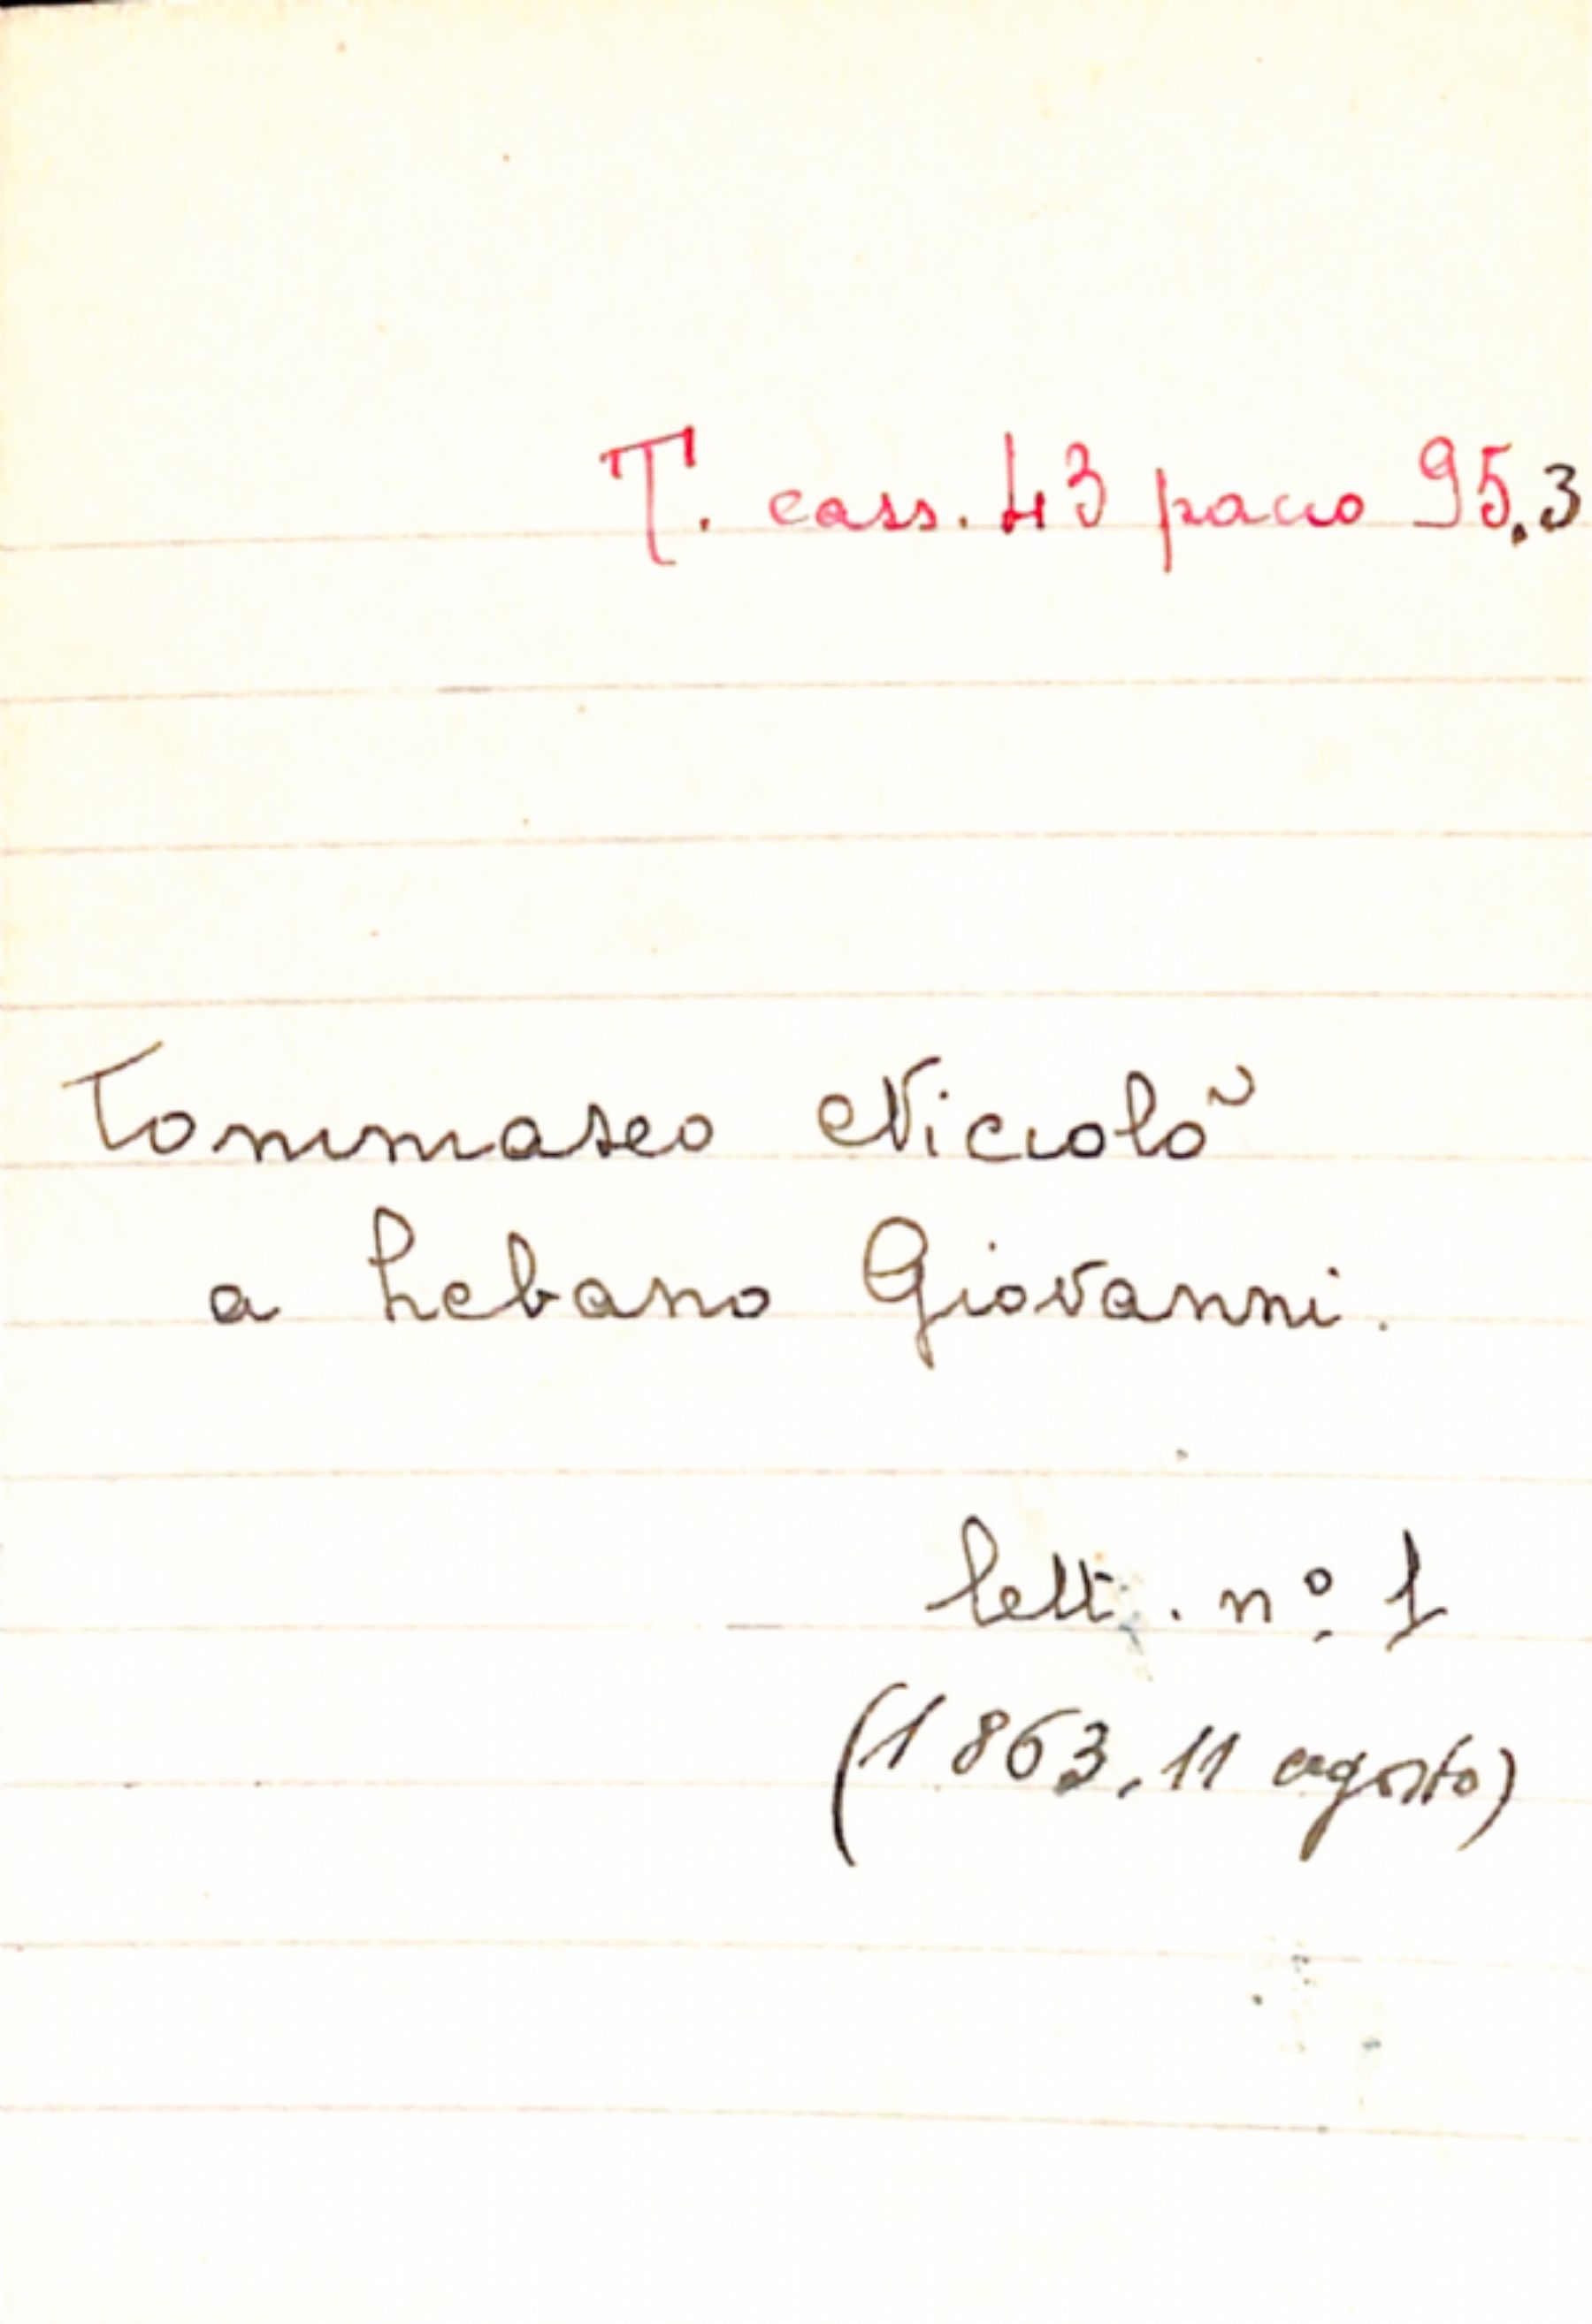 T. cass. 43 pacco 95.3
Tommaseo Niccolò
a Lebano Giovanni.
lett. nº 1
(1863, 11 agosto)